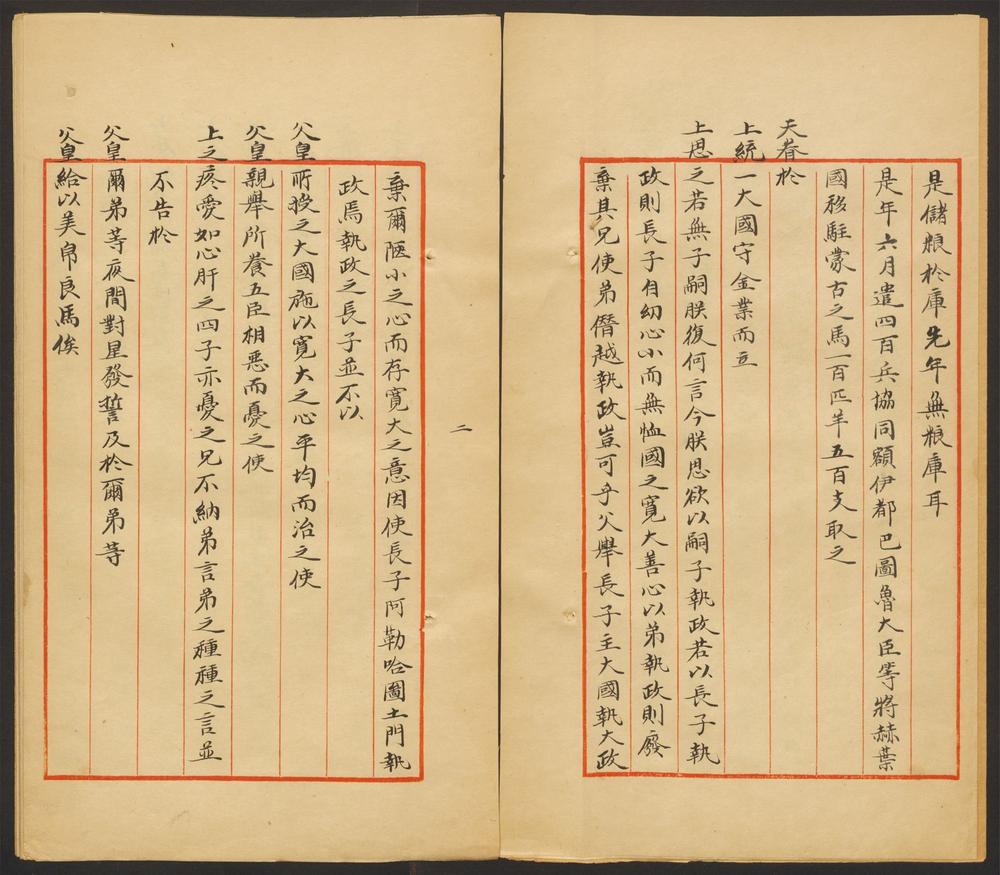 是儲粮於庫先年無粮庫耳
是年六月遣四百兵協同額伊都巴圖魯大臣等將赫葉
國移駐蒙古之馬一百匹羊五百支取之
天眷於
上統一大國守金業而立
上思之若無子嗣朕復何言今朕思欲以嗣子執政若以長子執
政則長子自幼心小而無恤國之寬大善心以弟執政則廢
棄其兄使弟僭越執政豈可乎父舉長子主大國執大政
棄爾陋小之心而存寬大之意因使長子阿勒哈圖土門執
政焉執政之長子並不以
父皇所授之大國施以寬大之心平均而治之使
父皇親舉所養五臣相惡而憂之使
上之疼愛如心肝之四子亦憂之兄不納弟言弟之種種之言並
不告於
父皇爾弟等夜間對星發誓及於爾弟等
父皇給以美帛良馬俟
二